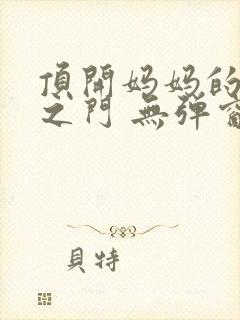 頂開妈妈的
之门 無弹窗
貝特